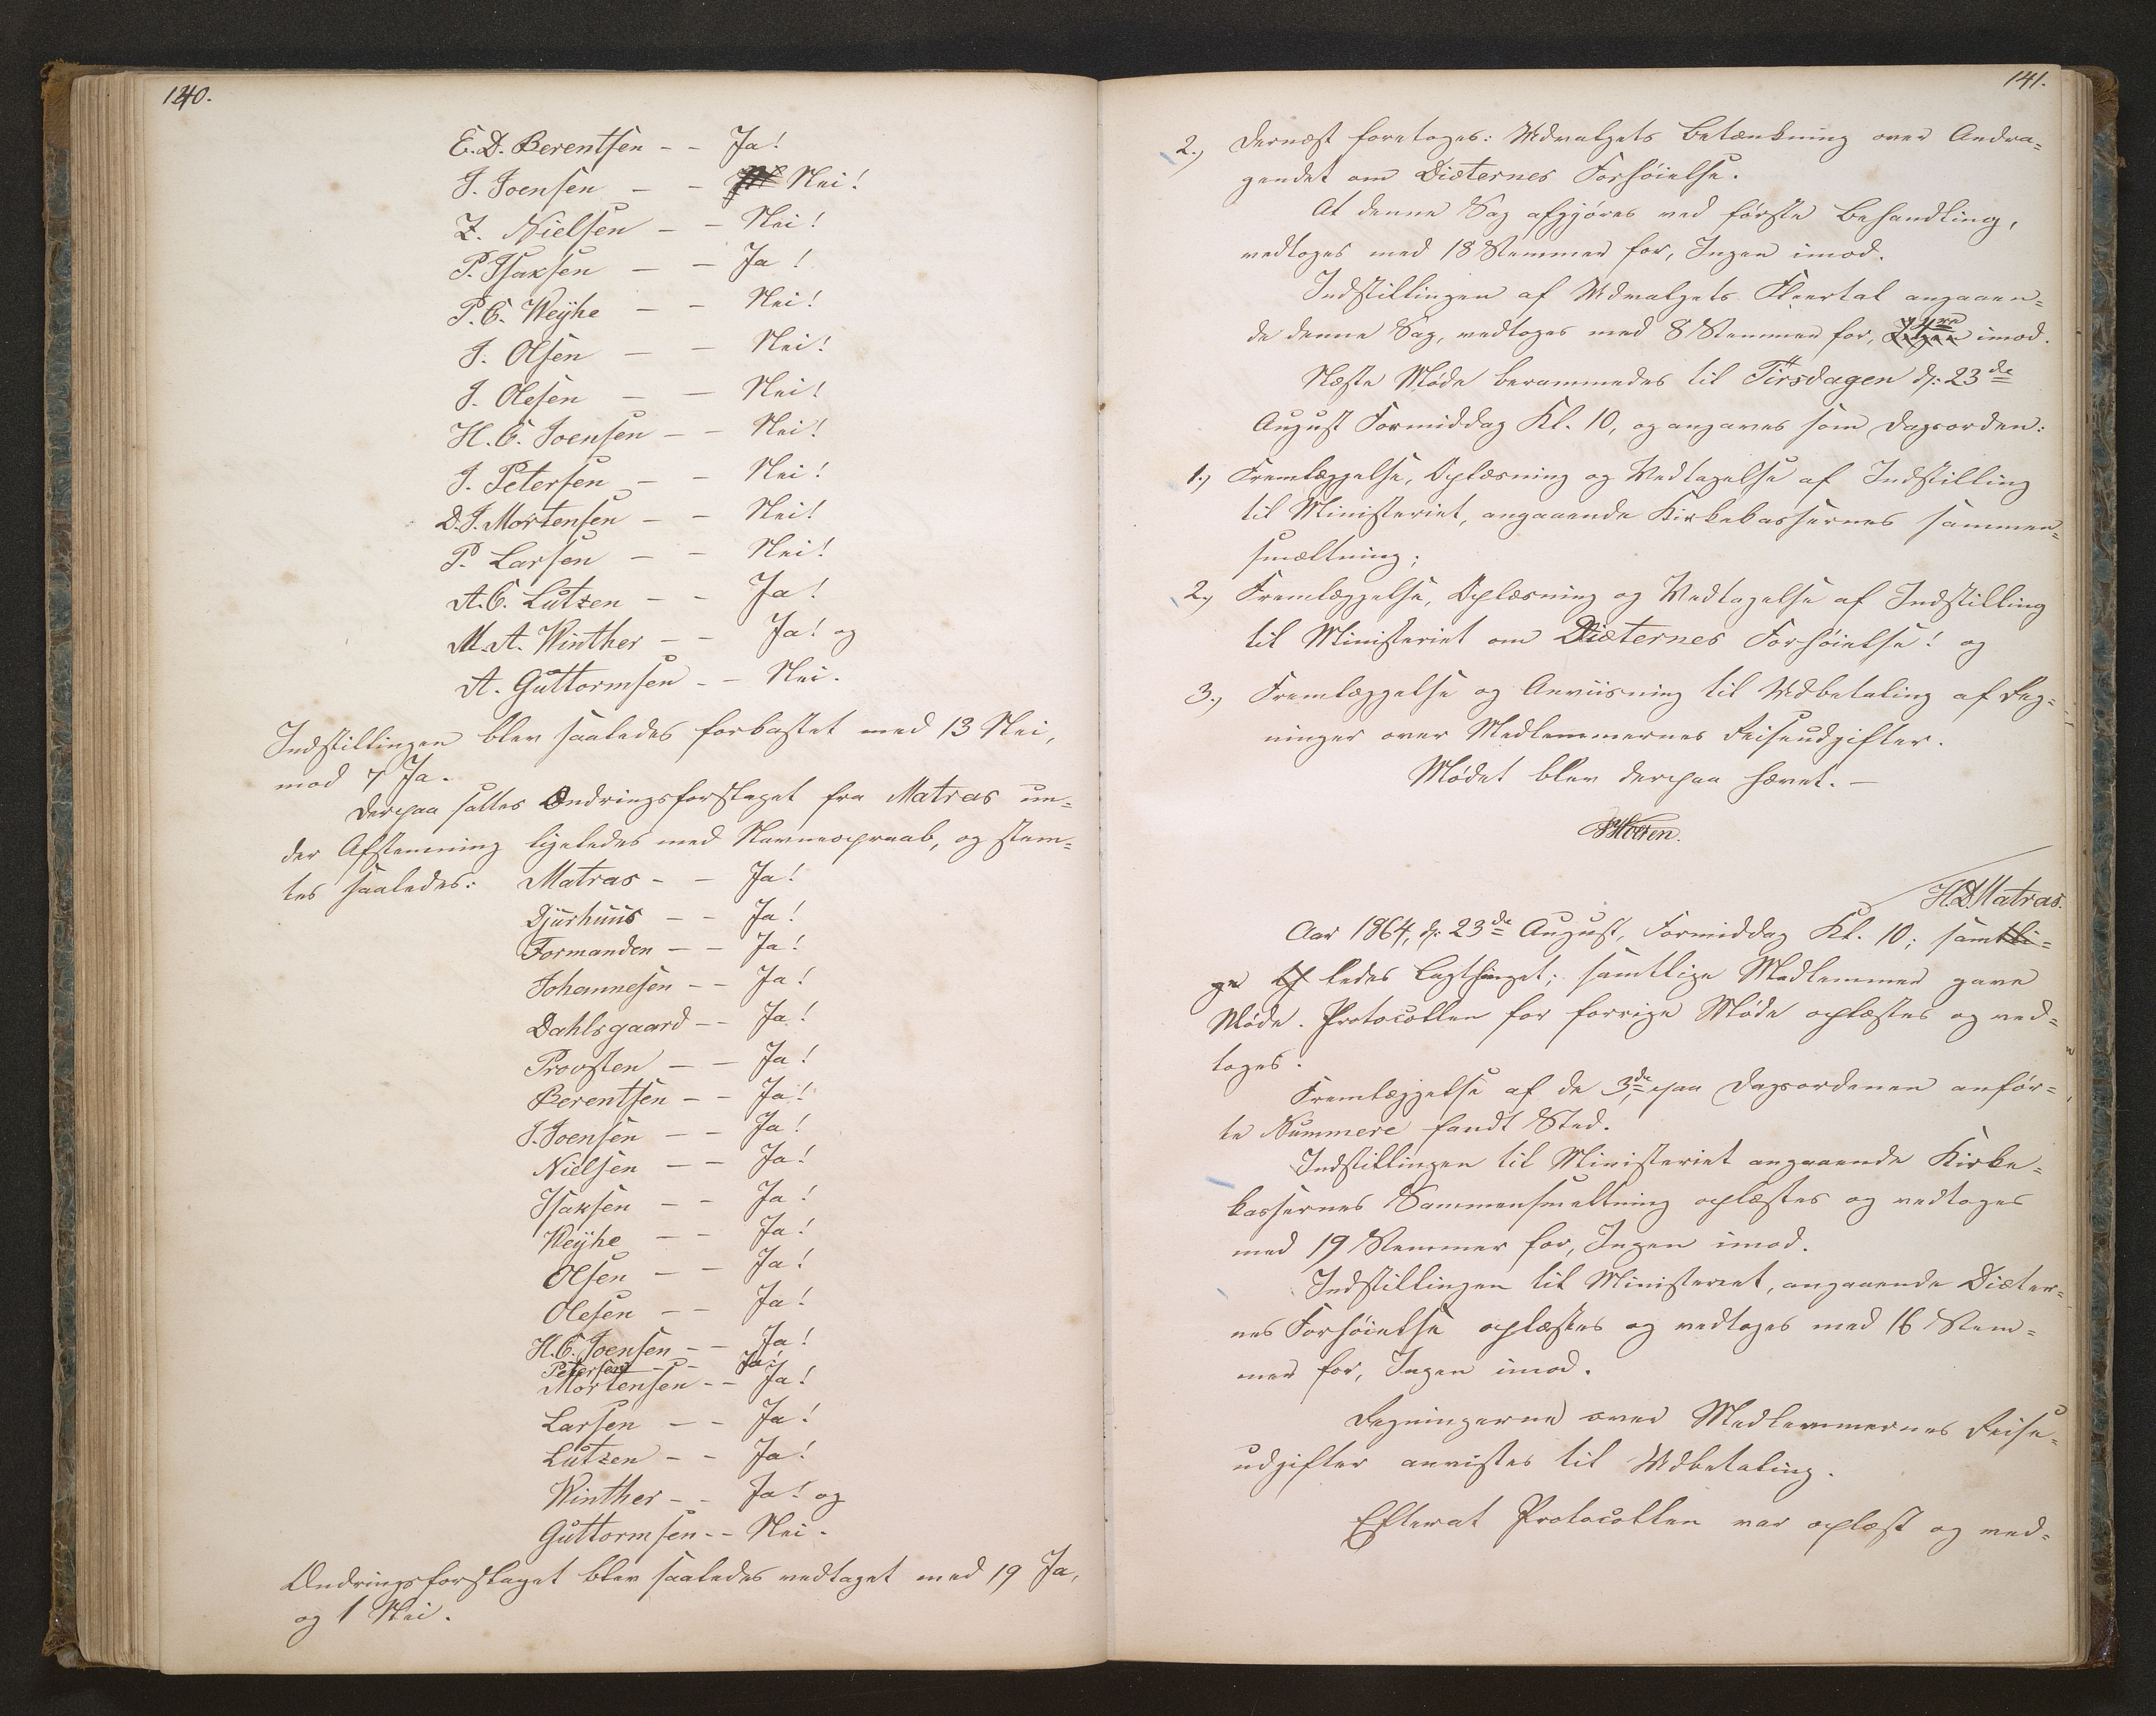 140.
E. D. Berentsen - - Ja!
J. Joensen - - Nei!
Z. Nielsen - - Nei!
P. Isaksen - - Ja!
P. C. Weÿhe - - Nei!
J. Olsen - - Nei!
J. Olesen - - Nei!
H. C. Joensen - - Nei!
J. Petersen - - Nei!
D. J. Mortensen - - Nei!
P. Larsen - - Nei!
A. C. Lützen - - Ja!
M. A. Winther - - Ja! og
A. Guttormsen - - Nei.
Indstillingen blev saaledes forkastet med 13 Nei,
mod 7 Ja.
Derpaa sattes Ændringsforslaget fra Matras un-
der Afstemning ligeledes med Navneopraab, og stem-
tes saaledes: Matras - - Ja!
Djurhuus - - Ja!
Formanden - - Ja!
Johannesen - - Ja!
Dahlsgaard - - Ja!
Provsten - - Ja!
Berentsen - - Ja!
J. Joensen - - Ja!
Nielsen - - Ja!
Isaksen - - Ja!
Weÿhe - - Ja!
Olsen - - Ja!
Olesen - - Ja!
H. C. Joensen - - Ja!
Petersen - - Ja!
Mortensen - - Ja!
Larsen - - Ja!
Lützen - - Ja!
Winther - - Ja! og
Guttormsen - - Nei.
Ændringsforslaget blev saaledes vedtaget med 19 Ja,
og 1 Nei.
141.
2.) Dernæst foretoges: Udvalgets Betænkning over Andra-
gendet om Diæternes Forhøielse.
At denne Sag afgjøres ved første Behandling,
vedtoges med 18 Stemmer for, Ingen imod.
Indstillingen af Udvalgets Fleertal angaaen-
de denne Sag, vedtoges med 8 Stemmer for, imod.
Næste Møde berammedes til Tirsdagen d: 23de
August Formiddag Kl. 10, og angaves som Dagsorden:
1.) Fremlæggelse, Oplæsning og Vedtagelse af Indstilling
til Ministeriet, angaaende Kirkekassernes sammen-
smæltning;
2.) Fremlæggelse, Oplæsning og Vedtagelse af Indstilling
til Ministeriet om Diæternes Forhøielse! og
3.) Fremlæggelse og Anviisning til Udbetaling af Reg-
ninger over Medlemmernes Reiseudgifter.
Mødet blev derpaa hævet. -
H. D. Matras.
Aar 1864, d: 23de August, Formiddag Kl. 10; samtli-
ge ledes Lagthinget; samtlige Medlemmer gave
Møde. Protocollen for forrige Møde oplæstes og ved-
toges.
Fremlæggelse af de 3de paa Dagsordenen anfør-
te Nummere fandt Sted.
Indstillingen til Ministeriet angaaende Kirke-
kassernes Sammensmeltning oplæstes og vedtoges
med 19 Stemmer for, Ingen imod.
Indstillingen til Ministeriet, angaaende Diæter-
nes Forhøielse oplæstes og vedtoges med 16 Stem-
mer for, Ingen imod.
Regningerne over Medlemmernes Reise-
udgifter anvistes til Udbetaling.
Efterat Protocollen var oplæst og ved-